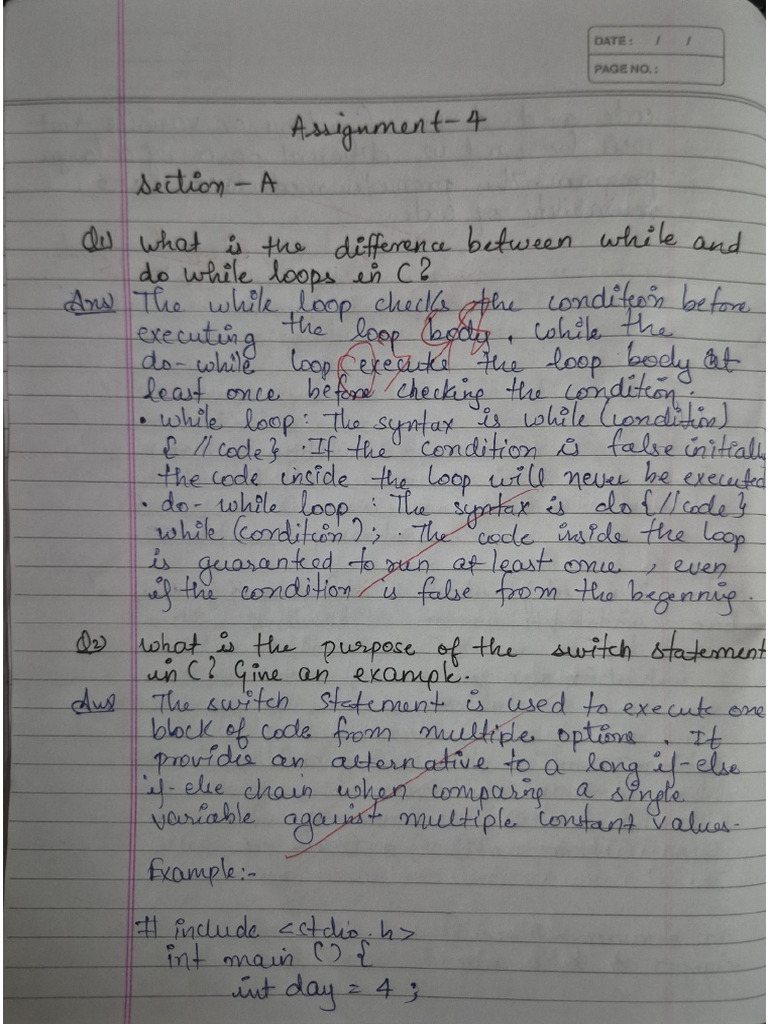 DATE: / /
PAGE NO.:
Assignment-4
Section-A
Q1) What is the difference between while and
do while loops in C?
Ans) The while loop checks the condition before
executing the loop body. While the
do-while loop execute the loop body at
least once before checking the condition.
• while loop: The syntax is while (condition)
{ //code} . If the condition is false initially
the code inside the loop will never be executed
• do-while loop : The syntax is do {//code}
while (condition); . The code inside the loop
is guaranted to run at least once, even
if the condition is false from the beginnig.
Q2) What is the purpose of the switch statement
in C? Give an example.
Ans The switch statement is used to execute one
block of code from multiple options. It
provides an alternative to a long if-else
if-else chain when comparing a single
variable against multiple constant values.
Example:-
# include <stdio.h>
int main () {
int day = 4 ;